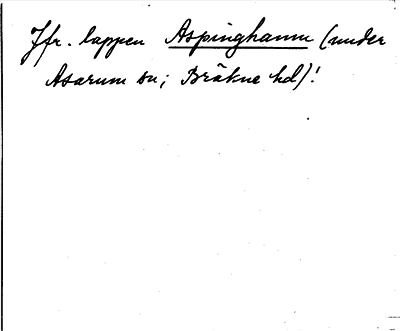 Jfr. lappen Aspinghamn (under
Asarum sn; Bräkne hd)!